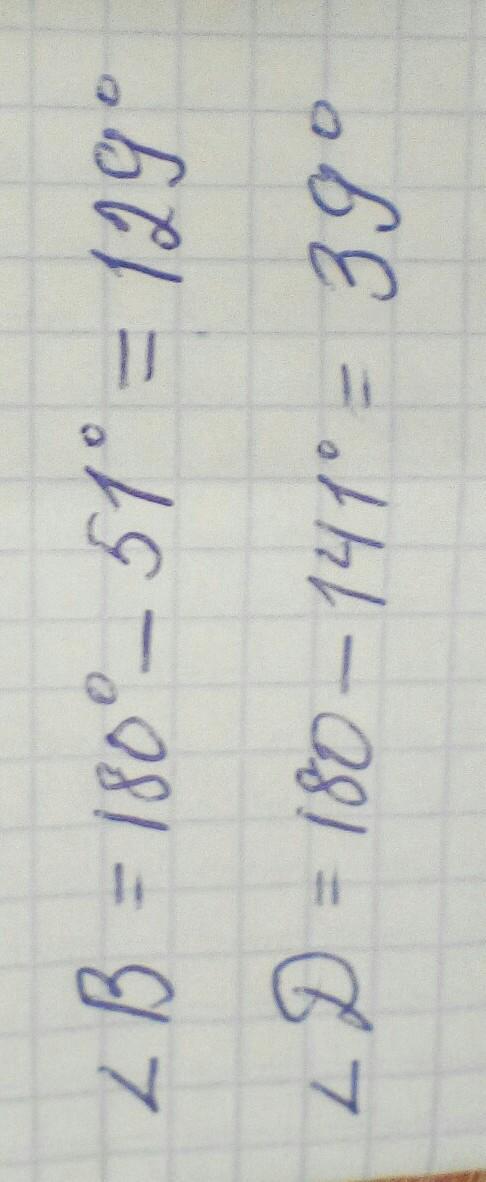 ∠B = 180° - 51° = 129°
∠D = 180 - 141° = 39°